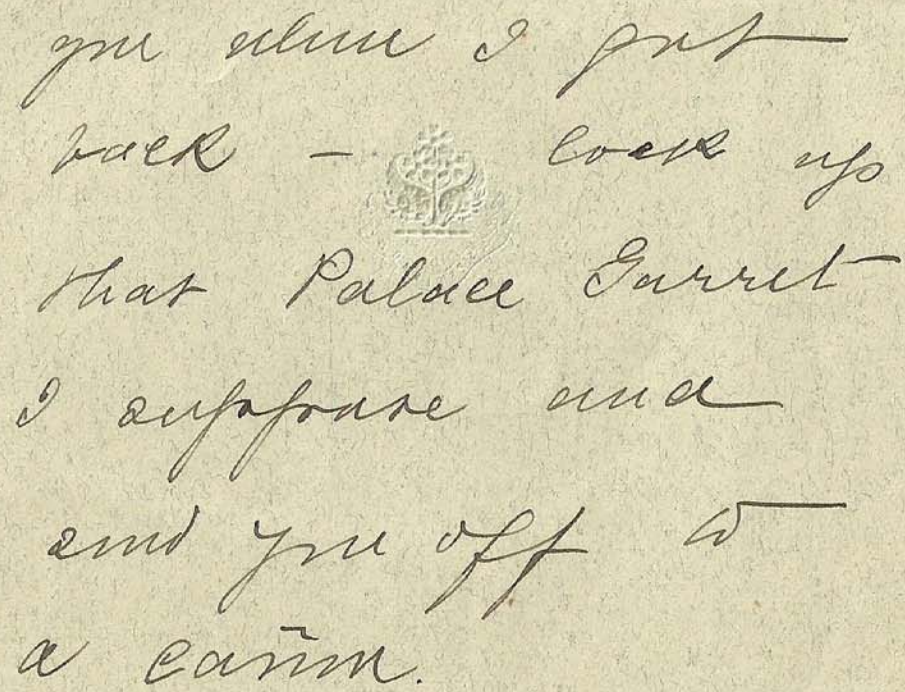 you when I get
back – lock up
that Palace Garret
I suppose and
send you off to
a cañon.